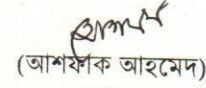 (আশফাক আহমেদ)